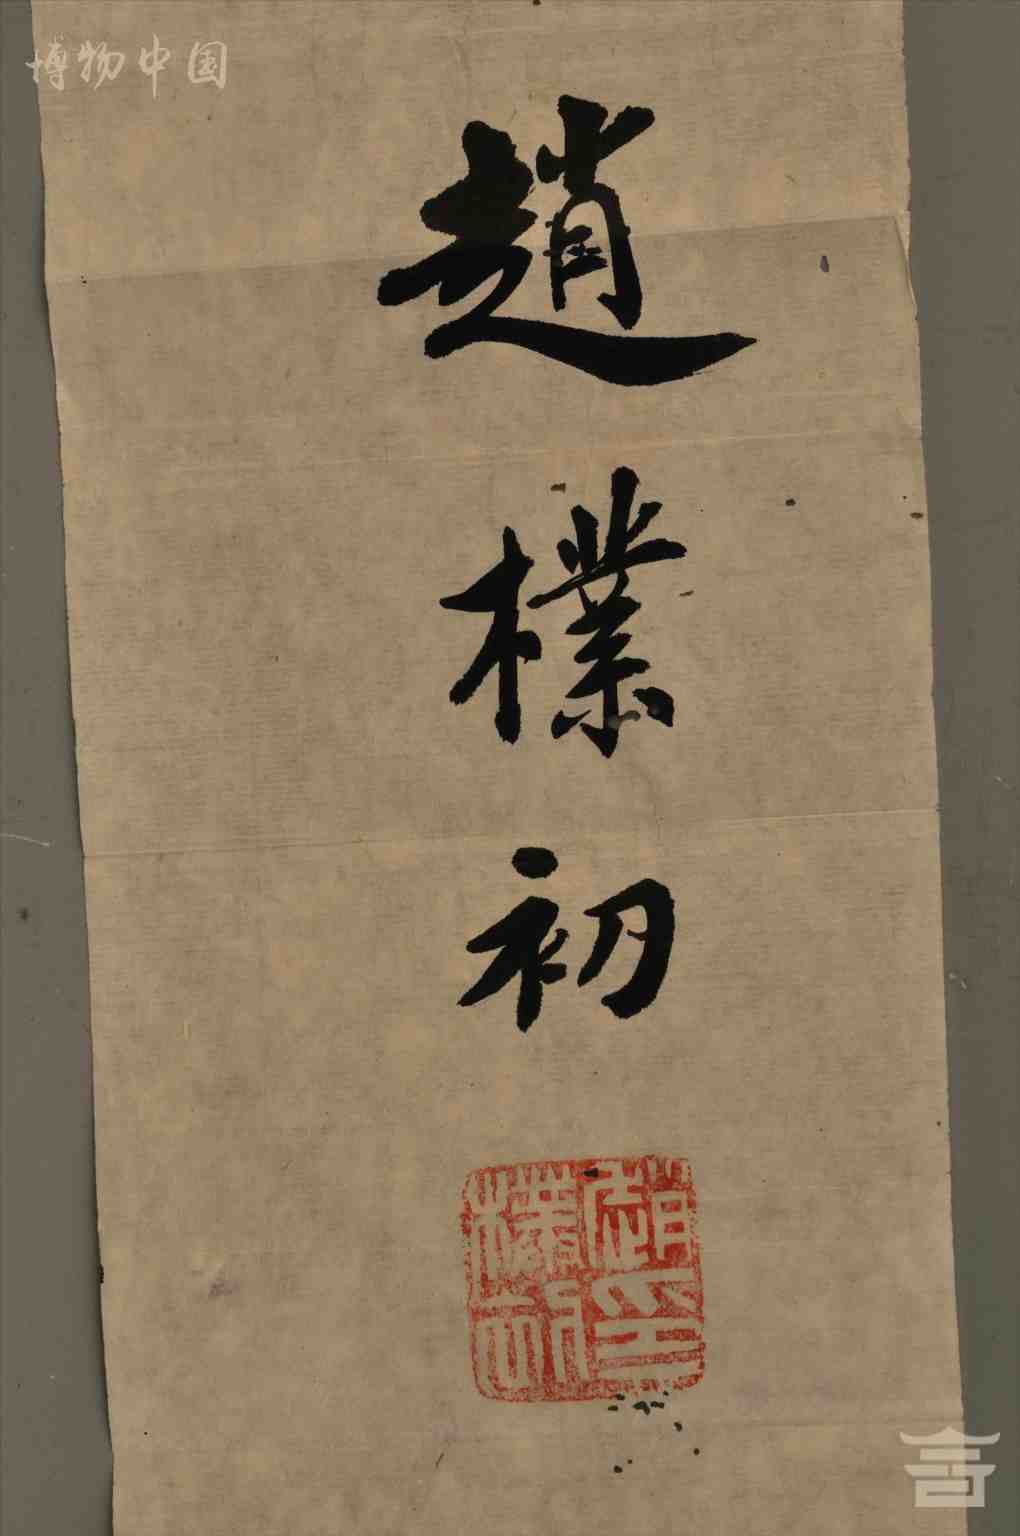 博物中国
趙
樸
初
趙印
樸初